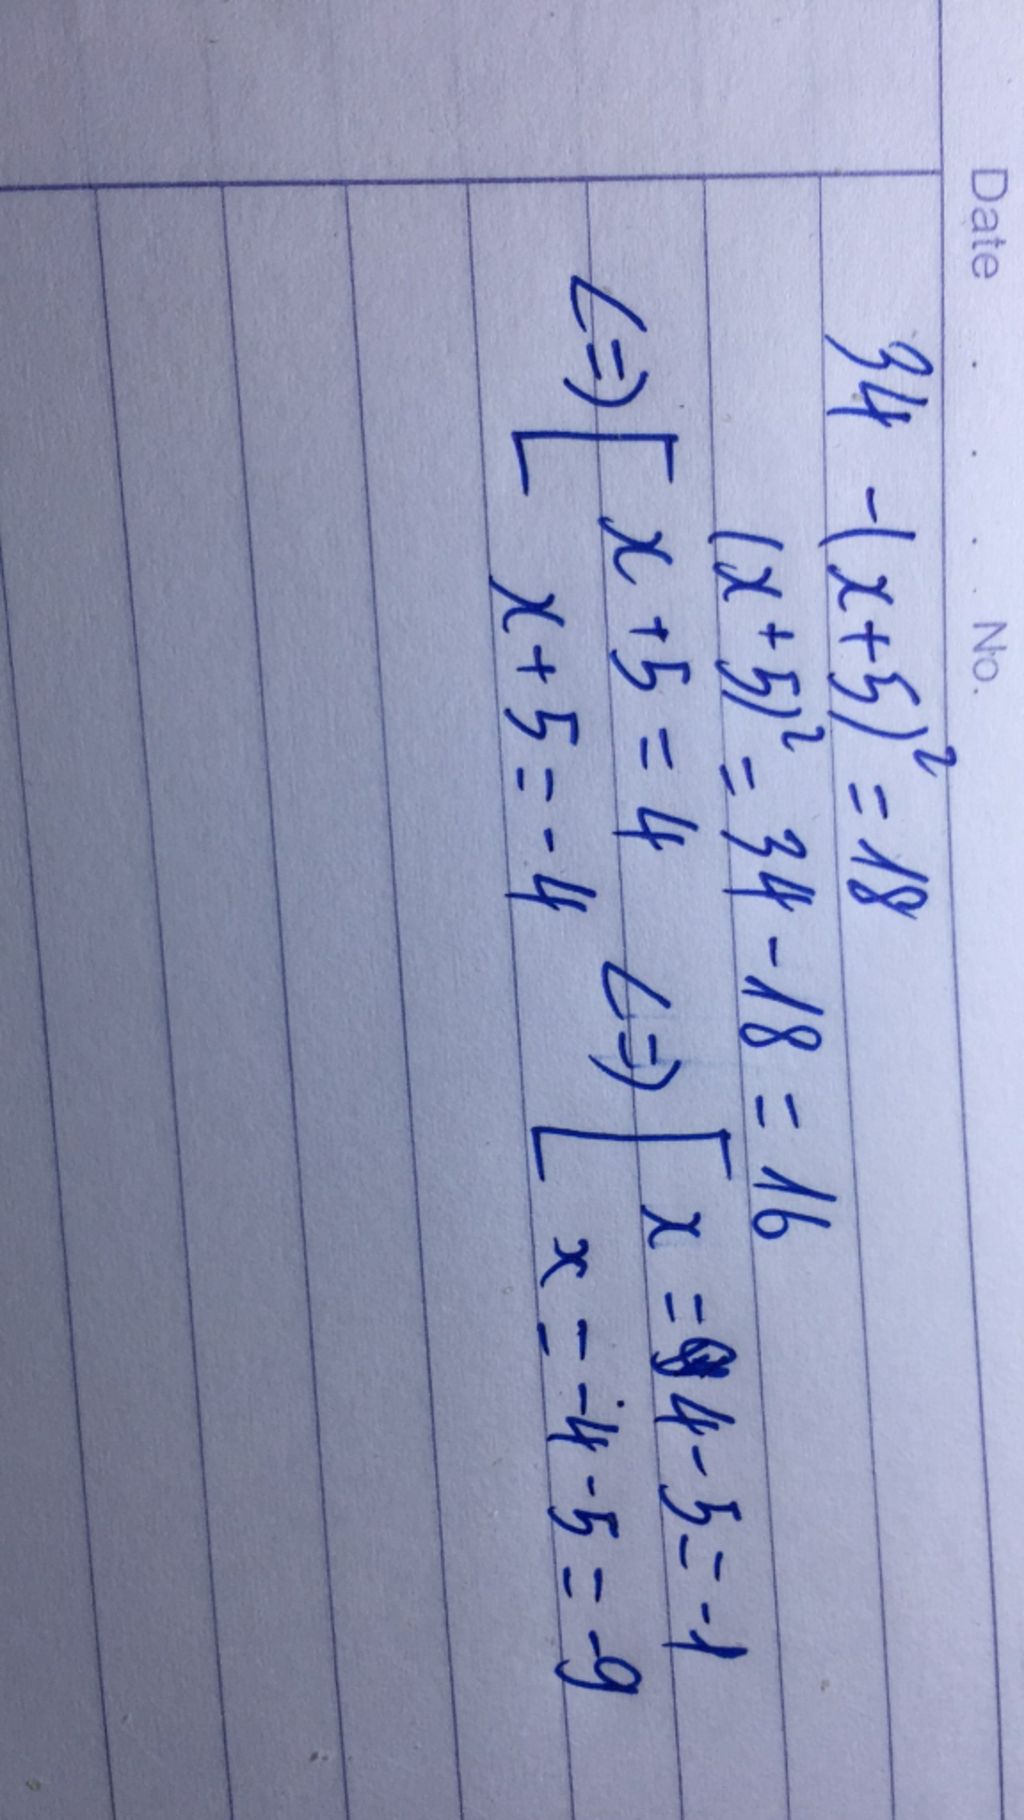 Date . . . . No.
34 -(x+5)² = 18
(x+5)² = 34-18 = 16
<=> [ x+5=4 <=> [ x = 4-5=-1
x+5=-4 x = -4-5 = -9